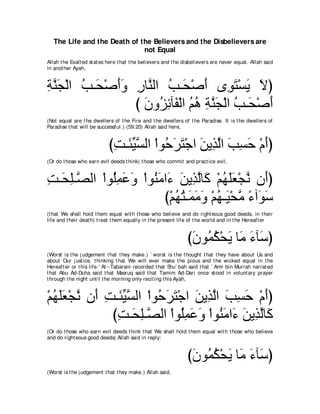 The Life and the Death of the Believers and the Disbelievers are
not Equal
Allah the Exalted states here that the believers and the disbelievers are never equal. Allah said
in another Ayah,
لاَ يَسْتَوِى أَصْحَـبُ النَّارِ وَأَصْحَـبُ الْجَنَّةِ
أَصْحَـبُ الْجَنَّةِ هُمُ الْفَآئِزُونَ )
(Not equal are the dwellers of the Fire and the dwellers of the Paradise. It is the dwellers of
Paradise that will be successful.) (59:20) Allah said here,
(أَمْ حَسِبَ الَّذِينَ اجْتَرَحُواْ السَّيِّئَـتِ)
(Or do those who earn evil deeds think) those who commit and practice evil,
(أَن نَّجْعَلَهُمْ كَالَّذِينَ ءَامَنُواْ وَعَمِلُواْ الصَّـلِحَـتِ
سَوَآءً مَّحْيَـهُمْ وَمَمَـتُهُمْ)
(that We shall hold them equal with those who believe and do righteous good deeds, in their
life and their death) treat them equally in the present life of the world and in the Hereafter
(سَآءَ مَا يَحْكُمُونَ)
(Worst is the judgement that they make.) `worst is the thought that they have about Us and
about Our justice, thinking that We will ever make the pious and the wicked equal in the
Hereafter or this life.' At-Tabarani recorded that Shu`bah said that `Amr bin Murrah narrated
that Abu Ad-Duha said that Masruq said that Tamim Ad-Dari once stood in voluntary prayer
through the night until the morning only reciting this Ayah,
(أَمْ حَسِبَ الَّذِينَ اجْتَرَحُواْ السَّيِّئَـتِ أَن نَّجْعَلَهُمْ
كَالَّذِينَ ءَامَنُواْ وَعَمِلُواْ الصَّـلِحَـتِ)
(Or do those who earn evil deeds think that We shall hold them equal with those who believe
and do righteous good deeds) Allah said in reply:
(سَآءَ مَا يَحْكُمُونَ)
(Worst is the judgement that they make.) Allah said,